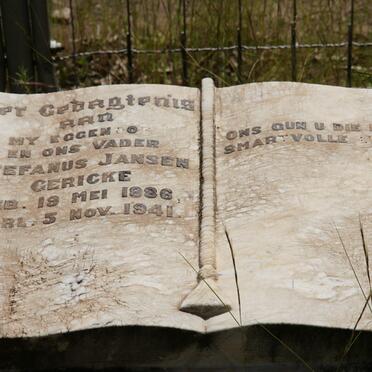 er Gedagtenis
aan
MY EGGENO
EN ONS VADER
EFANUS JANSEN
GERICKE
B. 19 MEI 1886
RL. 5 NOV. 1941.
ONS GUN U DIE
SMARTVOLLE